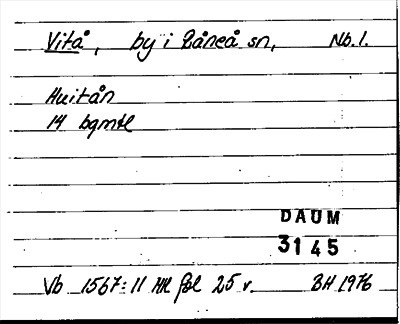 Vitå, by i Råneå sn, Nb. l.
Huitån
14 bgmtl
DAUM
3145
Vb 1567:11 Hl fol 25 v. BH 1976